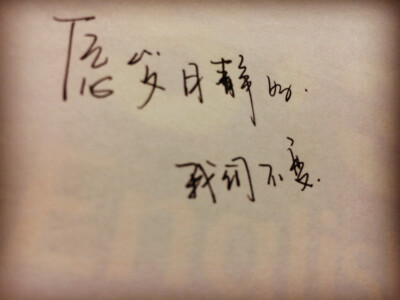 愿岁月静好.
我们不变.